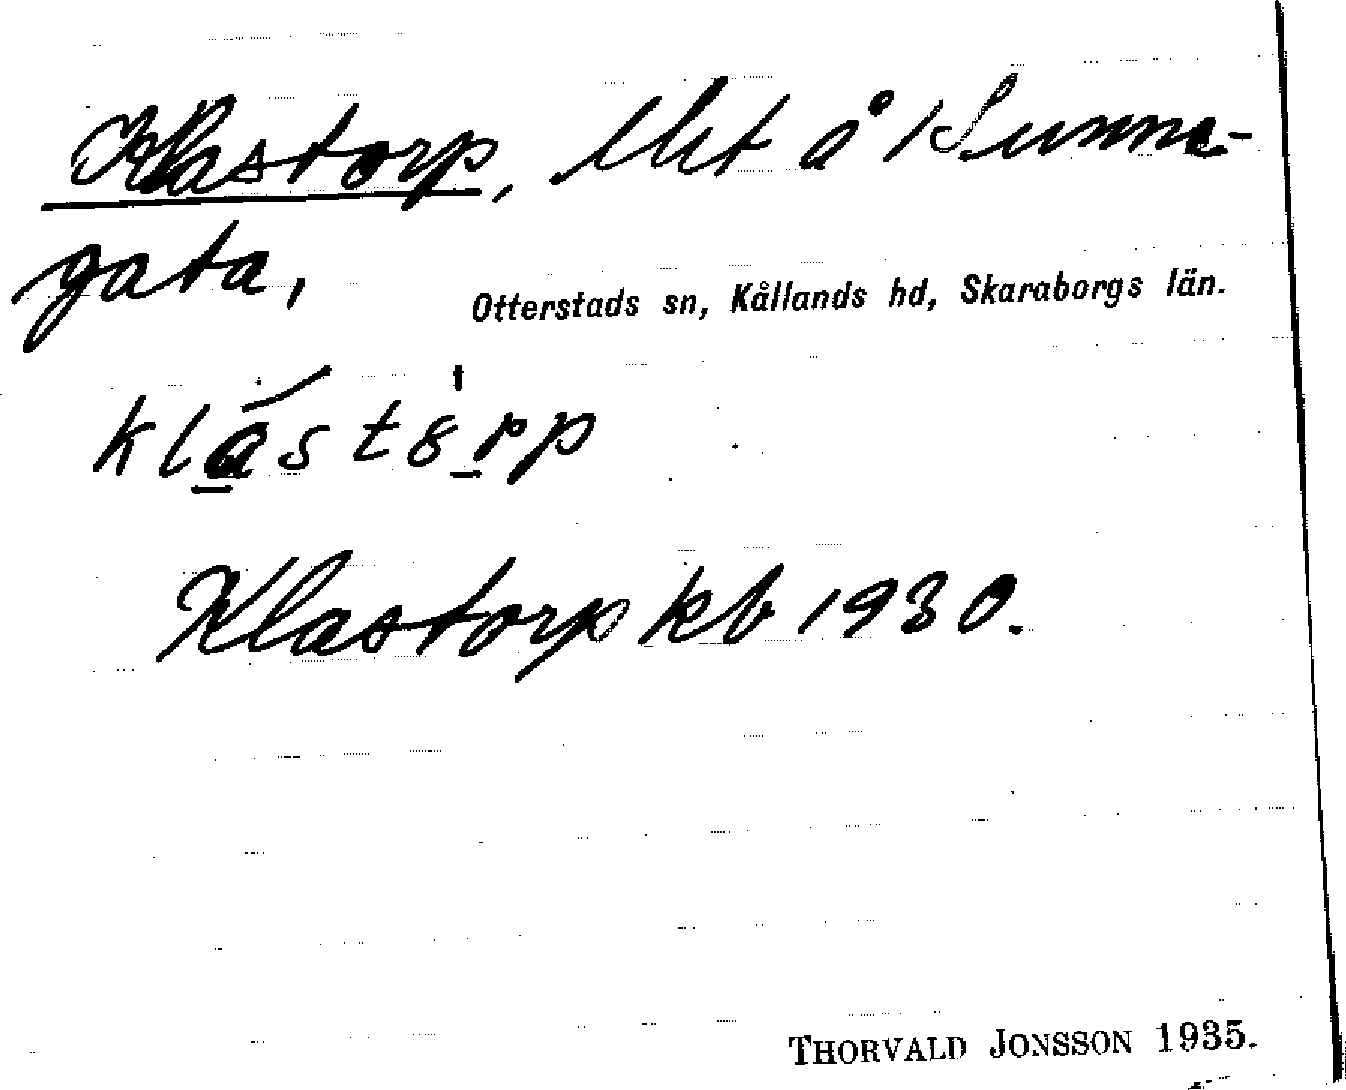 Klastorp, lht å 1 Sunna-
gata,
Otterstads sn, Kållands hd, Skaraborgs län.
Klastorp kb 1930.
THORVALD JONSSON 1935.